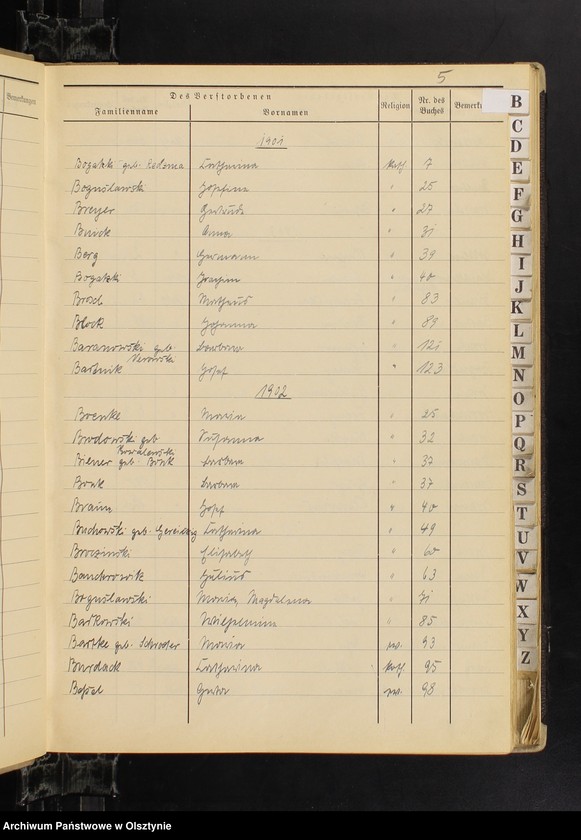 Bemerkungen
5
Des Verstorbenen
Familienname Vornamen Religion Nr. des Buches Bemerk
1901
Bogatzki geb. Catharina kath. 7
Boguslawski Josefina " 25
Breyer Gertrude " 27
Anna " 31
Berg Hermann " 39
Bogatzki Joachim " 40
Brosch Matheus " 83
Block Johanna " 89
Baranowski geb. Barbara " 121
Bartnik Josef " 123
1902
Brenke Maria " 25
Brodowski geb. Kowalewski Susanna " 32
Biener geb. Bonk Barbara " 37
Bonk Barbara " 37
Braun Josef " 40
Buchowski geb. Catharina " 49
Broczinski Elisabeth " 60
Julius " 63
Boguslawski Maria Magdalena " 71
Batkowski Wilhelmine " 85
Bartke geb. Schroeter Maria ev. 93
Burdack Catharina kath. 95
ev. 98
B
C
D
E
F
G
H
I
J
K
L
M
N
O
P
Q
R
S
T
U
V
W
X
Y
Z
Archiwum Państwowe w Olsztynie